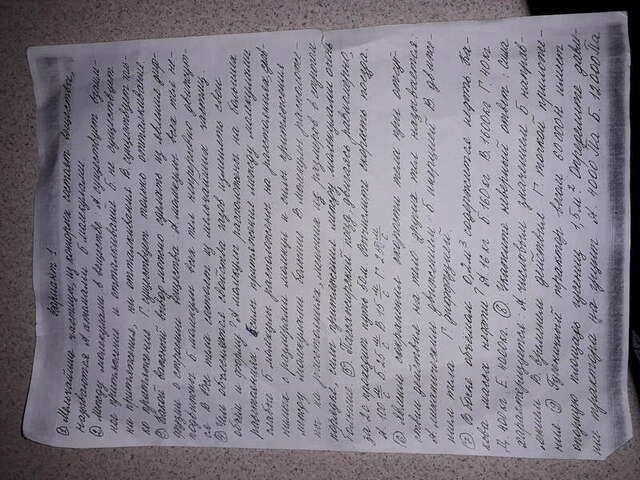 Вариант 1
① Мельчайшие частицы, из которых состоят вещества,
называются А атомами Б молекулами
② Между молекулами в веществе: А. существует взаим-
ное притяжение и отталкивание Б не существует
ни притяжения, ни отталкивания В существует толь-
ко притяжение Г. существует только отталкивание
③ Какой важный вывод можно сделать из явления диф-
фузии о строении вещества А. молекулы всех тел не-
подвижны Б молекулы всех тел непрерывно движут-
ся В. Все тела состоят из мельчайших частиц.
④ Чем объясняются свойства газов изменять свои
объем и форму? А молекулы расположены на больших
расстояниях, силы притяжения между молекулами
слабые Б молекулы расположены на расстояниях, срав-
нимых с размерами молекул и силы притяжения
между молекулами большие В. молекулы расположе-
ны на расстояниях, меньших их размеров в строгом
порядке, силы притяжения между молекулами очень
большие. ⑤. Пассажирский поезд, двигаясь равномерно,
за 20 проходит путь 50м Вычислите скорость поезда.
А. 100 м/с Б 25 м/с В 15 м/с Г. м/с
⑥ Явление сохранения скорости тела при отсут-
ствии действия на тело других тел называется:
А механическим движением Б инерцией В. движе-
нием тела Г диффузией.
⑦ В бочке объемом 0,2м³ содержится нефть. Ка-
кова масса нефти? А. 16 кг Б 160 кг В. 1600 кг Г. 40 кг
Д. 400 кг. Е. 4000 кг. ⑧ Укажите неверный ответ: Сила
характеризуется: А. числовым значением Б направ-
лением В. временем действия Г. точкой приложе-
ния ⑨ Гусеничный трактор весом 60000Н имеет
опорную площадь гусениц 1,5м². Определите давле-
ние трактора на грунт А. 4000 Па Б. 12000 Па